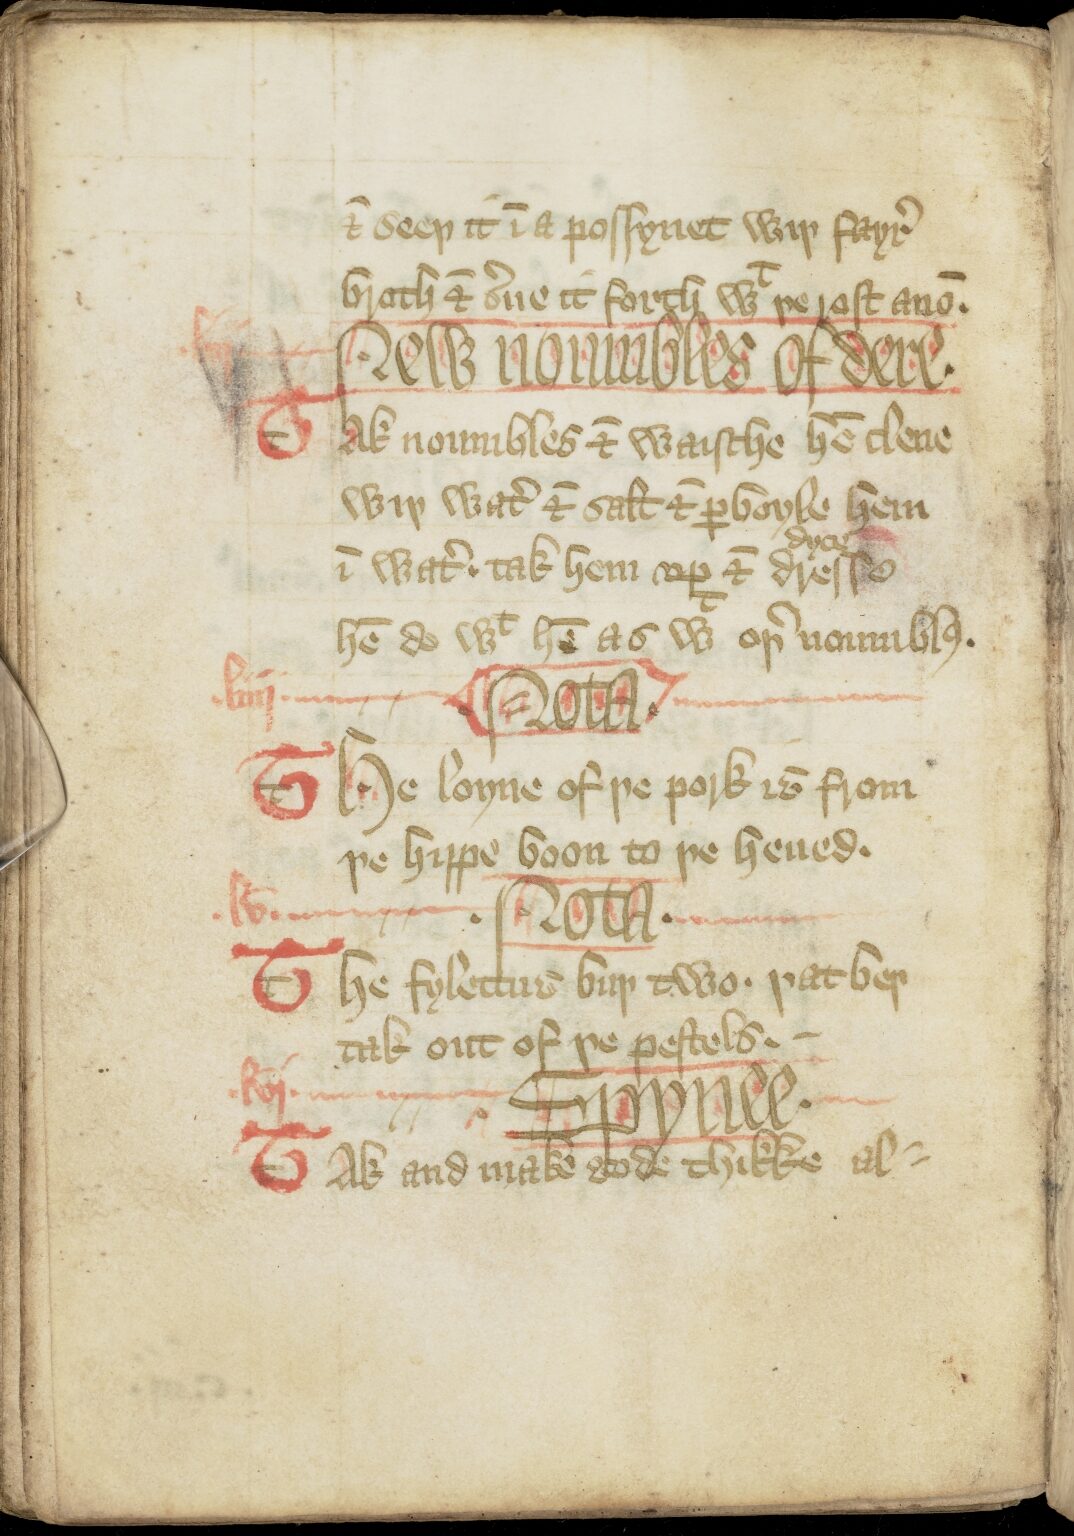 ⁊ seeþ it ī a possynet wiþ fayr̾
broth ⁊ s̾ue it forth wᵗ þe rost anō.
New noumbles of dere.
Tak noumbles ⁊ waische hē clene
wiþ wat̾ ⁊ salt ⁊ ꝑboyle hem
dyce
ī wat̾. tak hem vp ⁊ dresse
hē do wᵗ hē as wᵗ oþ̾ noumbl̾.
.liiij. Nota.
The loyne of þe pork is from
þe hippe boon to þe heued.
.lv. .Nota.
The fylettus buþ two. þat beþ
tak out of þe pestels.
.lvj. .Spynee.
Tak and make gode thikke al-